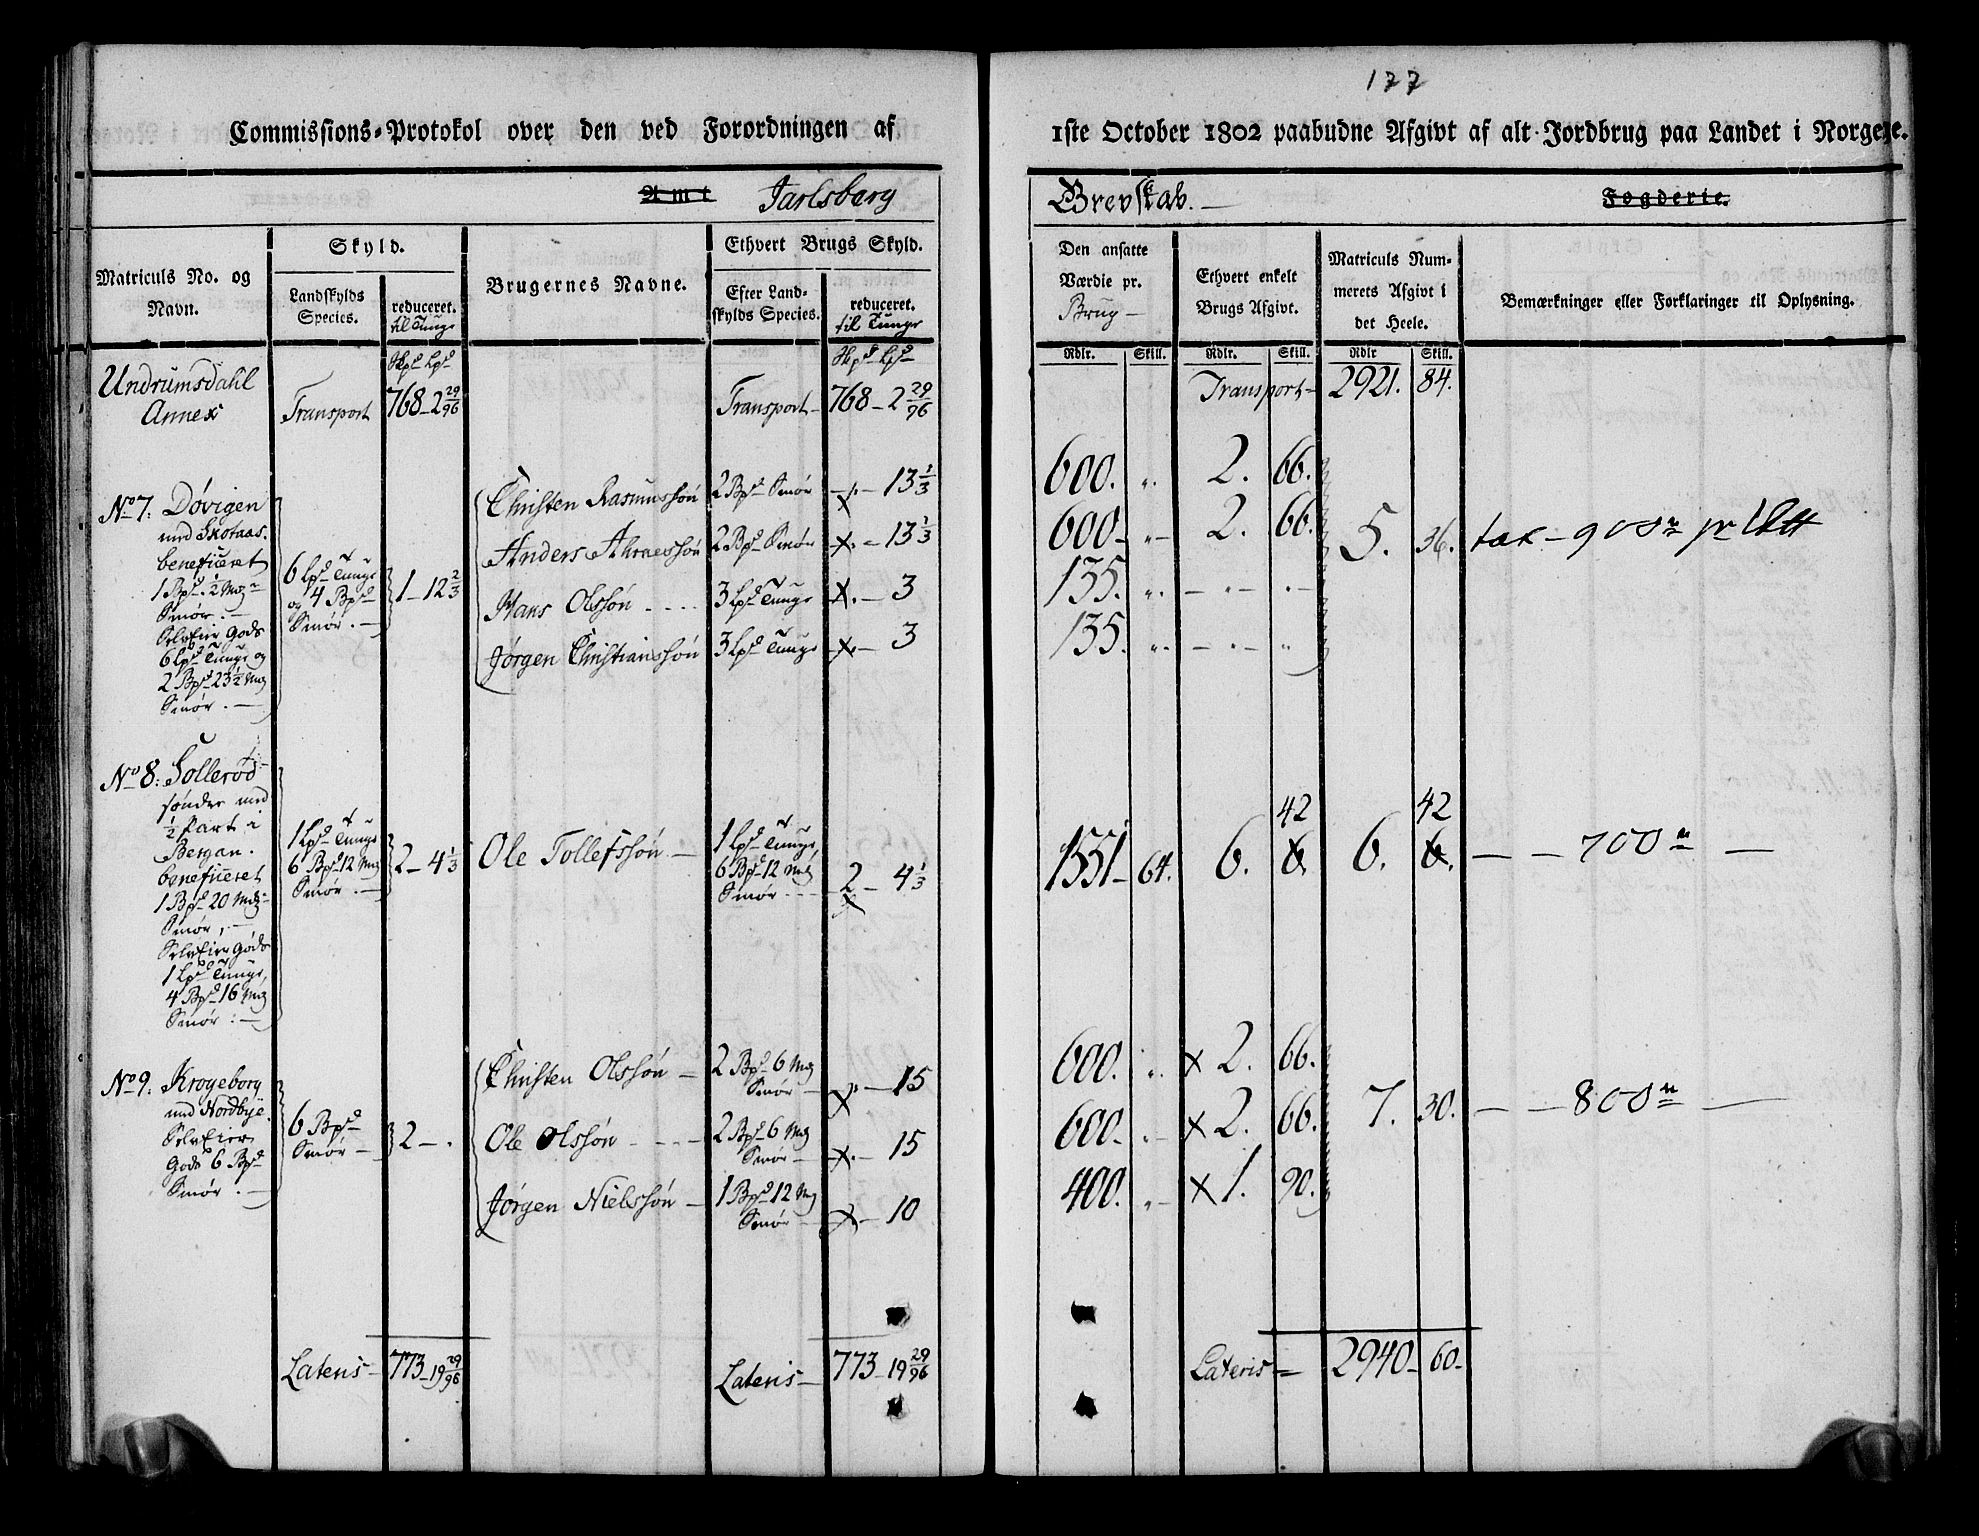 177
Commissions-Protokol over den ved Forordningen af 1ste October 1802 paabudne Afgivt af alt Jordbrug paa Landet i Norge.
Amt Jarlsberg Grevskab. Fogderie.
Matriculs No. og Navn.
Skyld.
Landskylds Species.
reduceret. til Tunge
Brugernes Navne.
Ethvert Brugs Skyld.
Efter Landskylds Species.
reduceret. til Tunge
Den ansatte Værdie pr. Brug
Ethvert enkelt Brugs Afgivt.
Matriculs Nummerets Afgivt i det Heele.
Bemærkninger eller Forklaringer til Oplysning.
Rdlr. Skill. Rdlr. Skill. Rdlr Skill.
Undrumsdahl
Annex
Transport 768-2 29/96
Transport 768-2 29/96
Transport 2921. 84.
No 7. Døvigen
med Skotaas.
beneficeret
1 Bpd. 1/2 Mrg
Smør.
SelvEier Gods
6 Lpd Tunge og
2 Bpd 23 1/2 Mrg
Smør.
6 Lpd Tunge
og 4 Bpd
Smør.
1-12 2/3
Christen Rasmussøn 2 Bpd Smør 13 1/3 600. 2. 66.
Anders Abraessøn 2 Bpd Smør 13 1/3 600 2. 66.
Hans Olssøn 3 Lpd Tunge 3 135.
Jørgen Christianssøn 3 Lpd Tunge 3 135.
5. 36.
tax 900
No 8. Sollerød
søndre med
1/2 Part i
Bergan.
beneficeret
1 Bpd 20 Mrg
Smør,
SelvEier Gods
1 Lpd Tunge,
4 Bpd 16 Mrg
Smør.
1 Lpd Tunge
6 Bpd 12 Mrg
Smør.
2-4 1/3
Ole Tollefssøn
1 Lpd Tunge,
6 Bpd 12 Mrg
Smør
2-4 1/3
1551 64.
42
6. 6.
42
6. 6.
700
No 9. Krogeborg
med Nordbye.
SelvEier
Gods 6 Bpd
Smør.
6 Bpd
Smør
2
Christen Olssøn 2 Bpd 6 Mrg Smør 15 600. 2. 66.
Ole Olssøn 2 Bpd 6 Mrg Smør 15 600 2. 66.
Jørgen Nielssøn 1 Bpd 12 Mrg Smør 10 400. 1. 90.
7. 30.
800
Lateris 773-19 29/96
Lateris 773-19 29/96
Lateris 2940 60